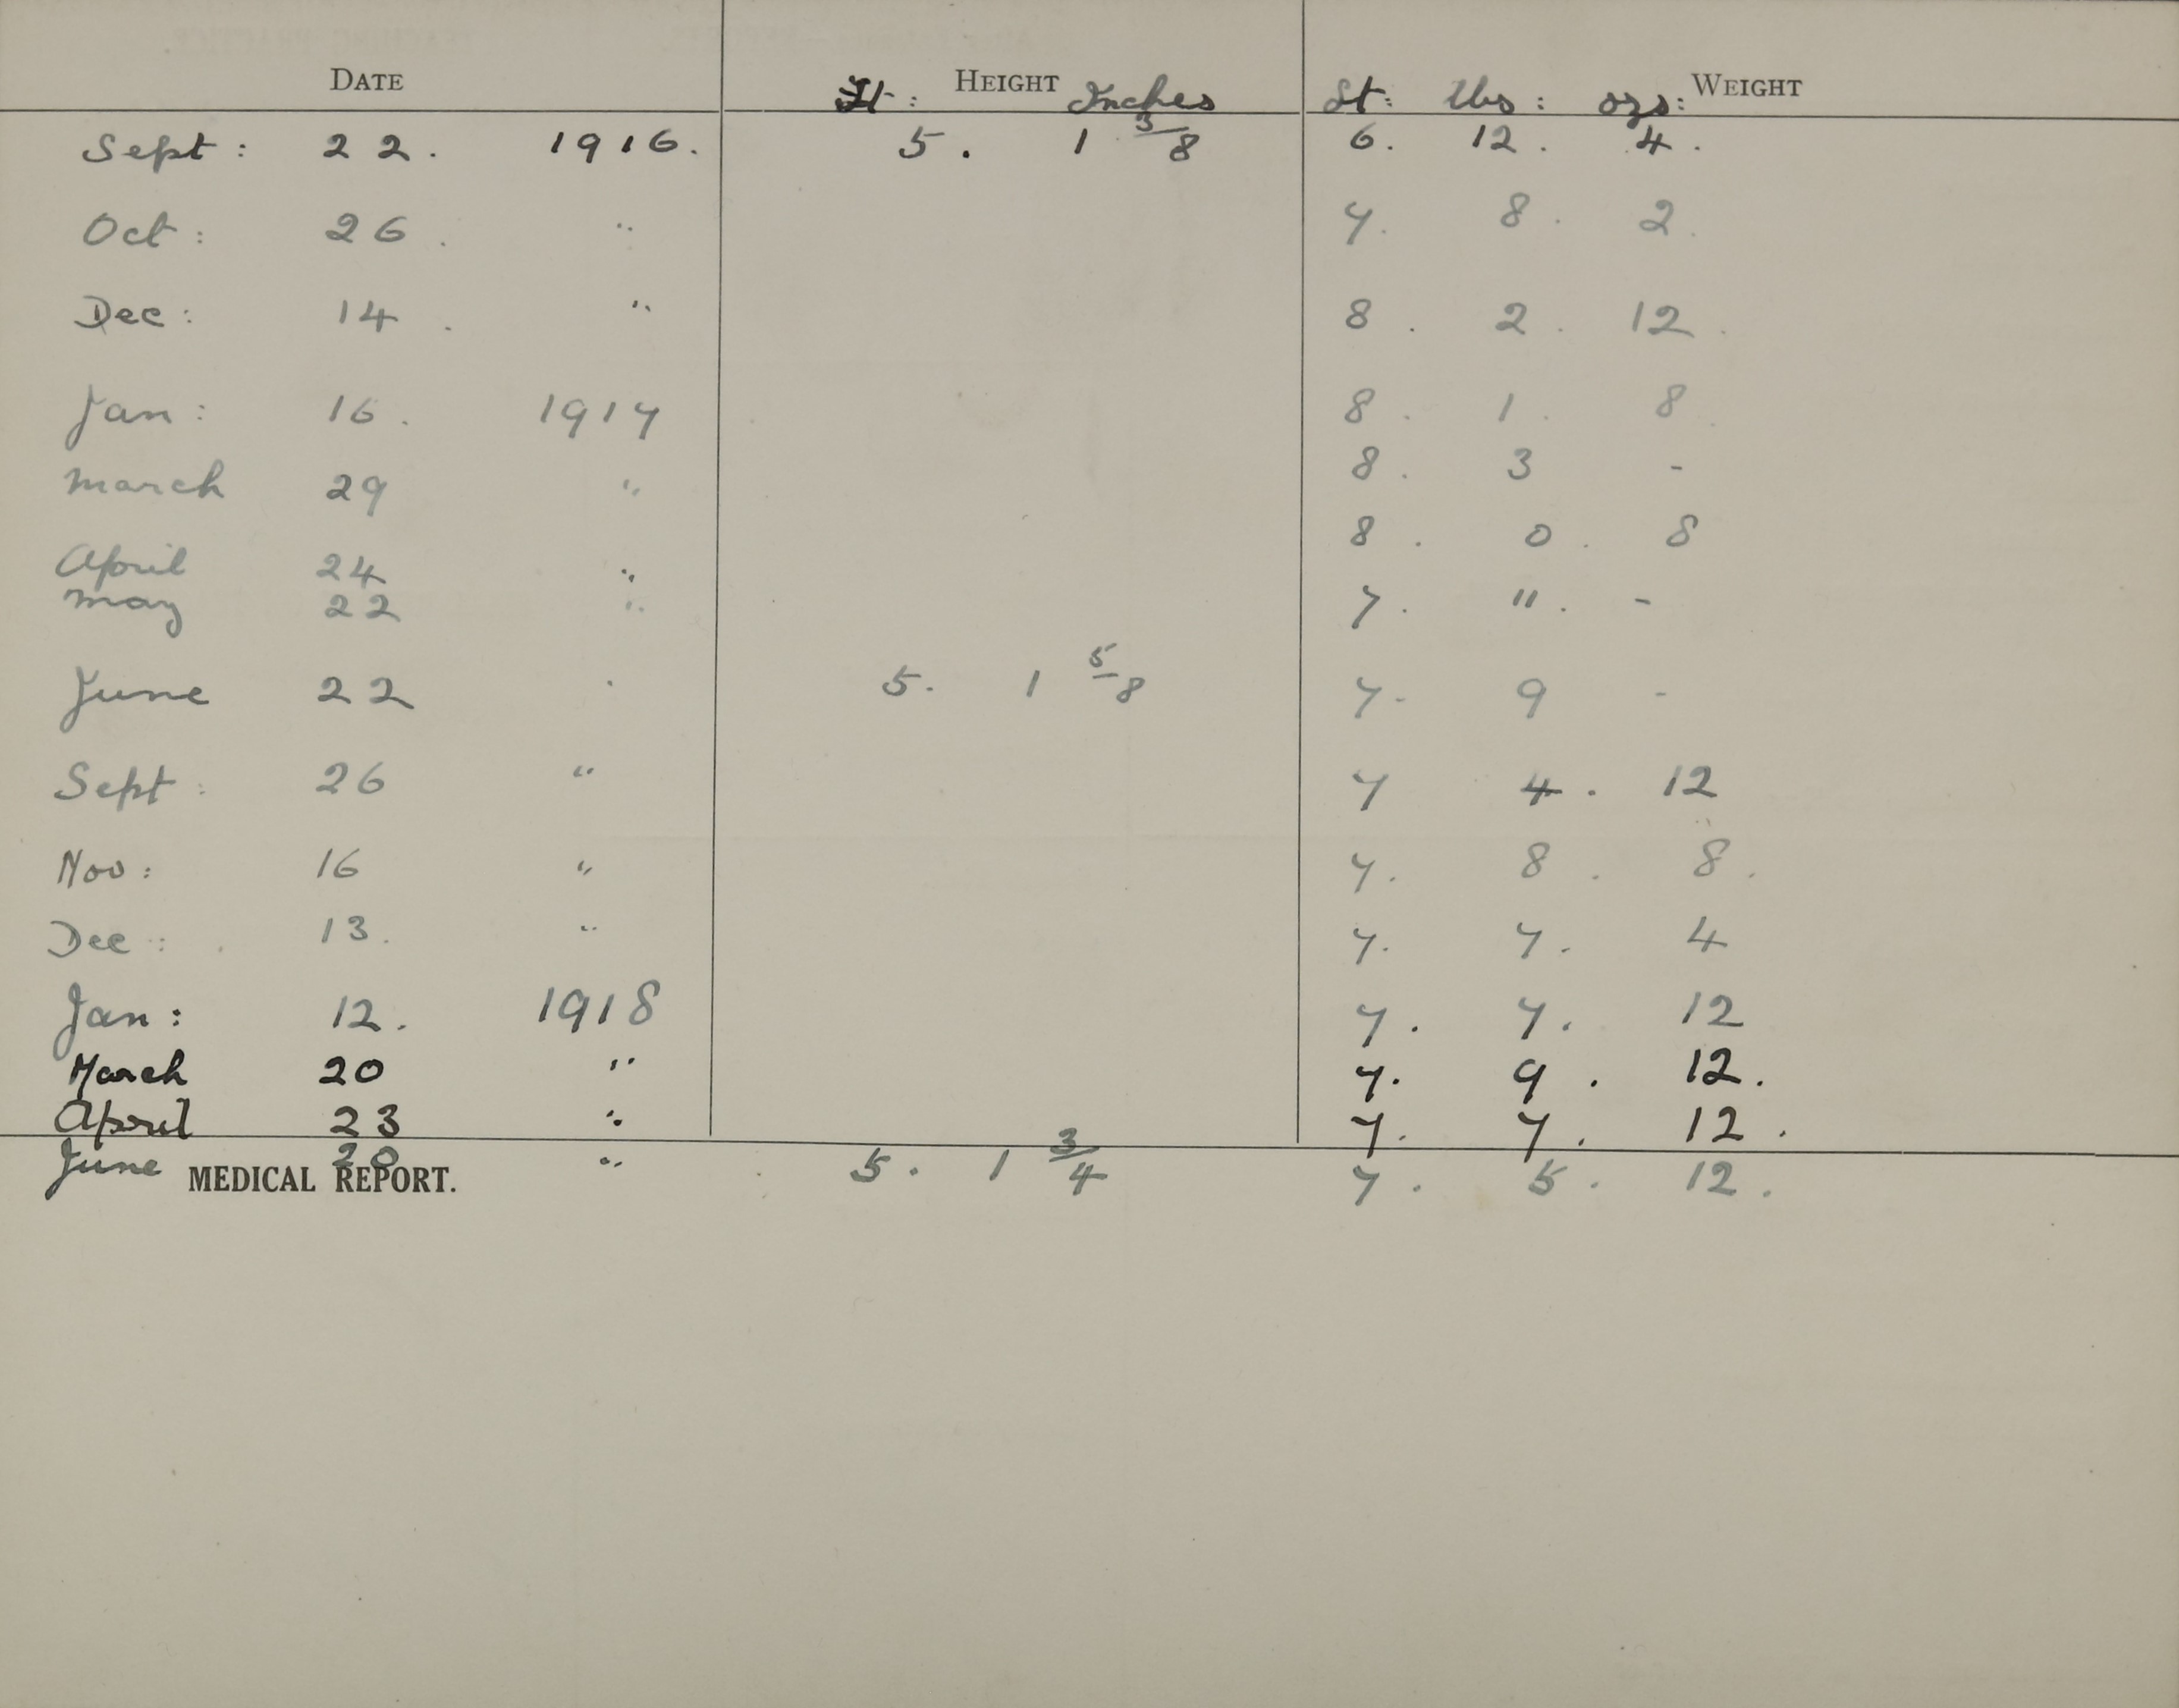 DATE HEIGHT WEIGHT
ft: Inches St: lbs: ozs:
Sept: 22. 1916. 5. 1 3/8 6. 12. 4.
Oct: 26. " 7. 8. 2.
Dec: 14. " 8. 2. 12.
Jan: 16. 1917 8. 1. 8.
March 29 " 8. 3 -
April 24 " 8. 0. 8
May 22 " 7. 11. -
June 22 " 5. 1 5/8 7- 9 -
Sept: 26 " 7 4. 12
Nov: 16 " 7. 8. 8.
Dec: 13. " 7. 7. 4
Jan: 12. 1918 7. 7. 12
March 20 " 7. 9. 12.
April 23 " 7. 7. 12.
June 20 " 5. 1 3/4 7. 5. 12.
MEDICAL REPORT.